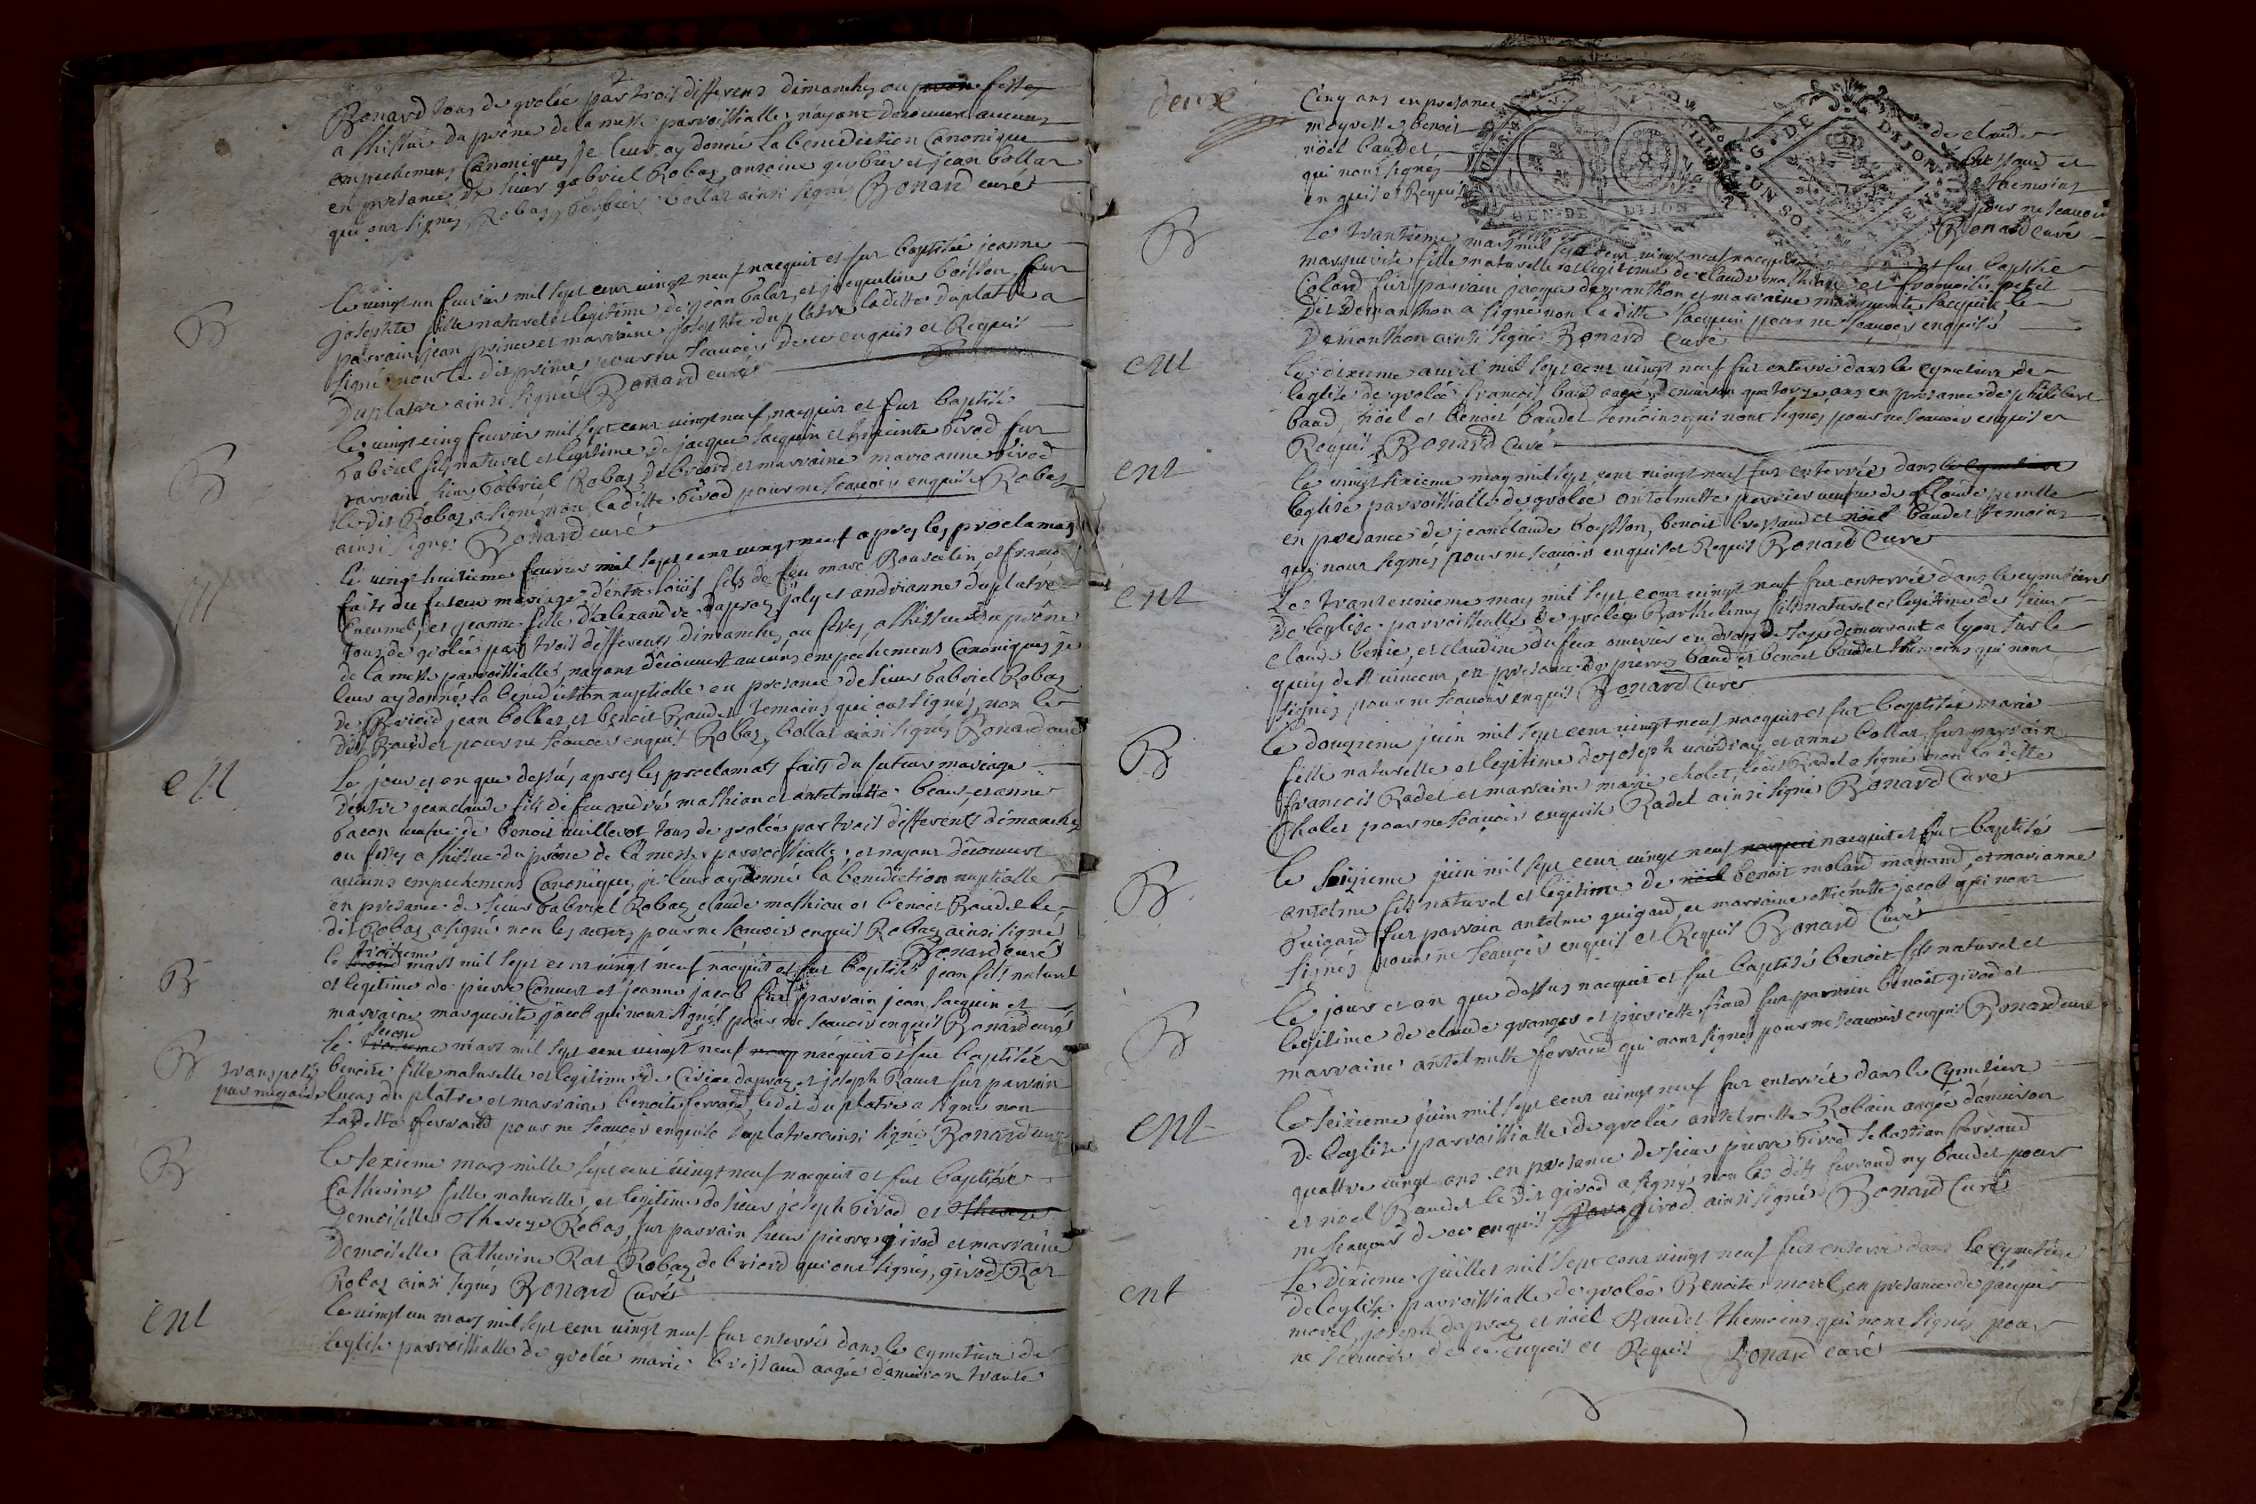 Bonard tous de grolée par trois differens dimanches ou festes
a l'hissue du prône de la messe parroissialle, n'ayant decouvert aucuns
empechemens Canoniques je leur ay donné la benediction Canonique
en presance de sieur gabriel Robaz, antoine et jean bollar
qui ont signes Robaz, bollar ainsi signés Bonard curé
B
le vingt un fevrier mil sept cent vingt neuf nacquit et fut baptisée jeanne
josephte fille naturel et legitime de jean balar, et jacqueline boisson, fut
parrain jean prime et marraine josephte du platre la ditte duplatre a
signé non le dit prime pour ne scavoir de ce enquis et Requis
Duplatre ainsi signé Bonard curé
B
le vingt cinq fevrier mil sept cent vingt neuf nacquit et fut baptisé
gabriel fils naturel et legitime de jacque jacquin et givod fut
parrain sieur gabriel Robaz de briord, et marraine marie anne givod
le dit Robaz, a signé non la ditte givod pour ne scavoir enquise Robaz
ainsi signé Bonard curé
M
le vingt huitieme fevrier mil sept cent vingt neuf apres les proclamas
faits du futur mariage d'entre fils de feu marc Bouvelin, et
et jeanne fille d'alexandre dapraz joly et andrianne duplatre
tous de grolée par trois differents dimanches ou fetes, a l'hissue du prône
de la messe parroissialle, nayant decouvert aucuns empechemens Canoniques je
leur ay donnés la benediction nuptialle en presance de sieur gabriel Robaz
de Briord jean bollar et benoit Baudet temoins qui ont signés, non le
dit Baudet pour ne scavoir enquis Robaz, bollar ainsi signés Bonard curé
M
Le jour et an que dessus apres les proclamats faits du futur mariage
d'entre jean claude fils de feu andré mathian et antelmette beau, et anne
bacon veufve de benoit vuillerot tous de grolée par trois differents dimanches
ou fetes a l'hissue du prône de la messe parroissialle, et nayant decouvert
aucuns empechemens Canonique, je leur ay donné la benediction nuptialle
en presance de sieur gabriel Robaz claude mathian et benoit Baudet le
dit Robaz a signé non les autres pour ne scavoir enquis Robaz ainsi signé
Bonard curé
B
troisieme
le mars mil sept cent vingt neuf nacquit et fut baptisé jean fils naturel
et legitime de pierre Convert et jeanne jacob fut parrain jean jacquin et
marraine marguerite jacob qui n'ont signés pour ne scavoir enquis Bonard curé
B
second
le mars mil sept cent vingt neuf nacquit et fut baptisée
transposés
par megarde
benoite fille naturelle et legitime de dapraz et joseph Ravet fut parrain
lucas du platre et marraine benoite ferrand, ledit du platre a signé non
la ditte ferrand pour ne scavoir enquise duplatre ainsi signé Bonard curé
B
le sexieme mars mille sept cent vingt neuf nacquit et fut baptisée
Catherine fille naturelle, et legitime de sieur joseph Givod et
Demoiselle Therese Robaz, fut parrain sieur pierre givod et marraine
Demoiselle Catherine Rat Robaz de briord qui ont signés, givod, Rat
Robaz ainsi signés Bonard Curé
ent
le vingt un mars mil sept cent vingt neuf fut enterrée dans le cymetiere de
l'eglise parroissialle de grolée marie bressaud aagée d'environ trante
deuxe
Cinq ans en presance de claude
benoit bressaud et
nöel baudet themoins
qui n'ont signés pour ne scavoir
enquis et Requis Bonard Curé
B
Le trantieme mars mil sept cent vingt neuf nacquit et fut baptisée
marguerite fille naturelle et legitime de claude mathian et françoise petit
Colard fut parrain jacque demanthon et marraine marguerite jacquin le
Dit Demanthon a signé non la ditte jacquin pour ne scavoir enquise
Demanthon ainsi signé Bonard Curé
ent
le dixieme avril mil sept cent vingt neuf fut enterré dans le cymetiere de
l'eglise de grolée françois baud aagé d'environ quatorze ans en presance de philibert
baud, nöel et benoit baudet temoins qui n'ont signés pour ne scavoir enquis et
Requis Bonard Curé
ent
le vingt sixieme may mil sept cent vingt neuf fut enterrée dans le cymetiere
l'eglise parroissialle de grolée antelmette perrier veufve de Claude
en presance de jean claude boisson, benoit bressaud et nöel baudet temoins
qui n'ont signés pour ne scavoir enquis et Requis Bonard Curé
ent
Le trante unieme may mil sept cent vingt neuf fut enterré dans le cymetiere
De l'eglise parroissialle de grolée Barthelemy fils naturel et legitime de sieur
Claude benie, et claudine dufeu ouvrier en drap de soye demeurant a lyon sur le
quay de st vincent, en presance de pierre baud et benoit baudet themoins qui n'ont
signés pour ne scavoir enquis Bonard Curé
B
le douzieme juin mil sept cent vingt neuf nacquit et fut baptisée marie
fille naturelle et legitime de joseph vaudray et anne bollar, fut parrain
françois Radet et marraine marie cholet, ledit Radet a signé non la ditte
Cholet pour ne scavoir enquise Radet ainsi signé Bonard Curé
B
le seizieme juin mil sept cent vingt neuf nacquit et fut baptisé
antelme fils naturel et legitime de benoit molard manand, et marianne
guigard fut parrain antelme guigard, et marraine jacob qui n'ont
signés pour ne scavoir enquis et Requis Bonard Curé
B
le jour et an que dessus nacquit et fut baptisé benoit fils naturel et
legitime de claude granger et pierrette fut parrain benoit givod et
marraine antelmette ferrand qui n'ont signés pour ne scavoir enquis Bonard curé
ent
le seizieme juin mil sept cent vingt neuf fut enterrée dans le Cymetiere
De l'eglise parroissialle de grolée antelmette Robain aagée d'environ
quattre vingt ans en presance de sieur pierre Givod sebastian ferrand
et noel Baudet le dit givod a signé, non les dits ferrand ny baudet pour
ne scavoir de ce enquis givod ainsi signé Bonard Curé
ent
Le dixieme juillet mil sept cent vingt neuf fut enterré dans le cymetiere
de l'eglise parroissialle de grolée Benoite morel, en presance de jacque
morel, joseph dapraz et nöel Baudet themoins qui n'ont signés pour
ne scavoir de ce enquis et Requis Bonard curé
G. DE DIJON
UN SOL
GEN. DE DIJON